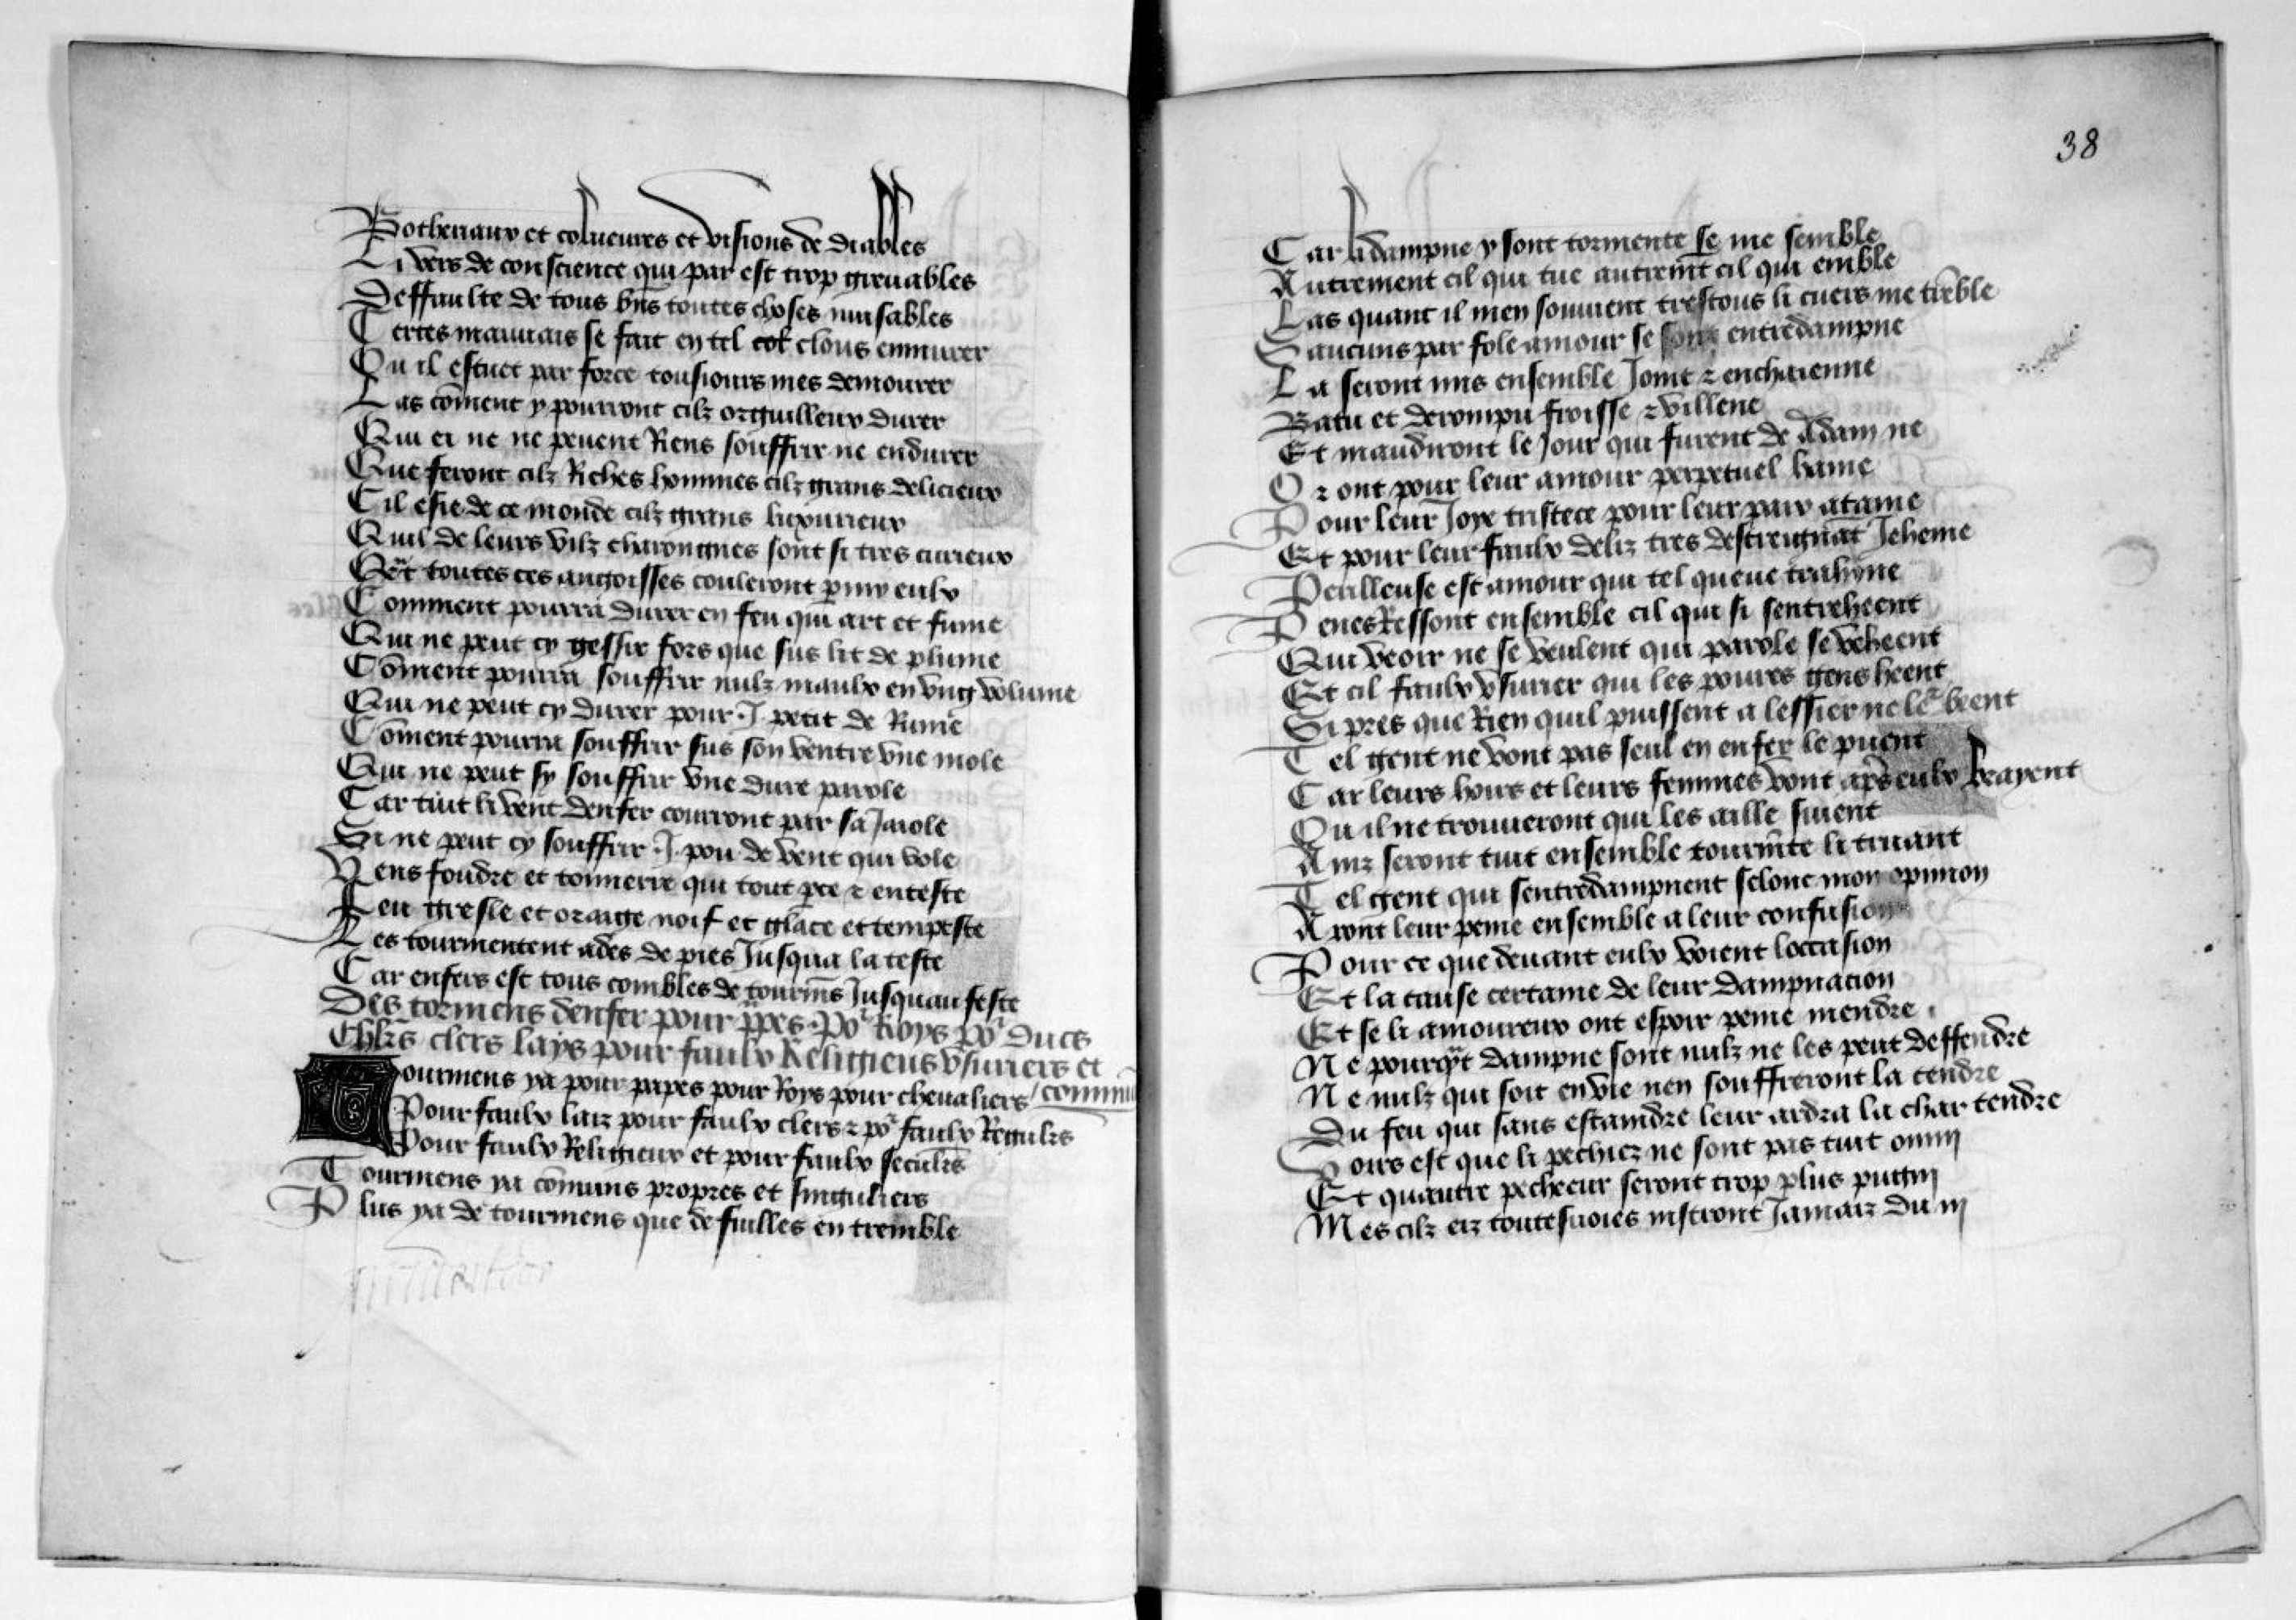 Bothenaux et colueures et visions de diables
Li vers de conscience qui par est trop greuables
Deffaulte de tous bñs toutes choses nuisables
Certes mauuais se fait en tel clous enmurer
Ou il estuet par force tousiours mes demourer
Las cõment y pourront cilz orguilleux durer
Qui ci ne ne peuent Riens souffrir ne endurer
Que feront cilz Riches hommes cilz grans delicieux
Cil de ce monde cilz grans luxurieux
Quil de leurs vilz charongnes sont si tres curieux
Qñt toutes ces angoisses couleront parmy eulx
Comment pourra durer en feu qui art et fume
Qui ne peut cy gessir fors que sus lit de plume
Cõment pourra souffrir nulz maulx en vng volume
Qui ne peut cy durer pour .I. petit de Rume
Cõment pourra souffrir sus son ventre vne mole
Qui ne peut sy souffrir vne dure parole
Car tuit li vent denfer courront par sa Jaiole
Si ne peut cy souffrir .I. pou de vent qui vole
Vens foudre et tonnerre qui tout pce ⁊ enteste
Feu gresle et oraige noif et glace et tempeste
Les tourmentent ades de pies Jusqua la teste
Car enfers est tous combles de tourmẽs Jusquau feste
Des tormens denfer pour ppes por Roys por ducs
Chlrs clers lays pour faulx Religieus vsuriers et
commũ
Tourmens ya pour papes pour Roys pour cheualiers
Pour faulx laiz pour faulx clers ⁊ por faulx Regulrs
Pour faulx Religieux et pour faulx seculrs
Tourmens ya cõmuns propres et singuliers
Plus ya de tourmens que de fuilles en tremble
38
Car li dampne y sont tormente se me semble
Autrement cil qui tue autremt cil qui emble
Las quant il men souuient trestous li cuers me trẽble
Saucuns par fole amour se sont entredampne
La seront mis ensemble Joint ⁊ enchaienne
Batu et derompu froisse ⁊ villene
Et maudiront le Jour qui furent de Adam ne
Or ont pour leur amour perpetuel haine
Pour leur Joye tristece pour leur paix ataine
Et pour leur faulx deliz tres destreignãt Jeheine
Perilleuse est amour qui tel queue trahyne
Penes Ressont ensemble cil qui si sentreheent
Qui veoir ne se veulent qui parole se veheent
Et cil faulx vsurier qui les poures gens heent
Si pres que Rien quil puissent a lessier ne ler beent
Tel gent ne vont pas seul en enfer le puent
Car leurs hoirs et leurs femmes vont aprs eulx brayent
Ou il ne trouueront qui les aille suient
Ainz seront tuit ensemble tourmẽte li truant
Tel gent qui sentredampnent selonc mon opinion
Aront leur peine ensemble a leur confusion
Pour ce que deuant eulx voient loccasion
Et la cause certaine de leur dampnacion
Et se li amoureux ont espoir peine mendre
Ne pourqñt dampne sont nulz ne les peut deffendre
Ne nulz qui soit en vie nen souffreront la cendre
Du feu qui sans estaindre leur ardra la char tendre
Voirs est que li pechiez ne sont pas tuit onnij
Et quautre pecheeur seront trop plus pugnij
Mes cilz eiz toutesuoies nistront Jamaiz du nj